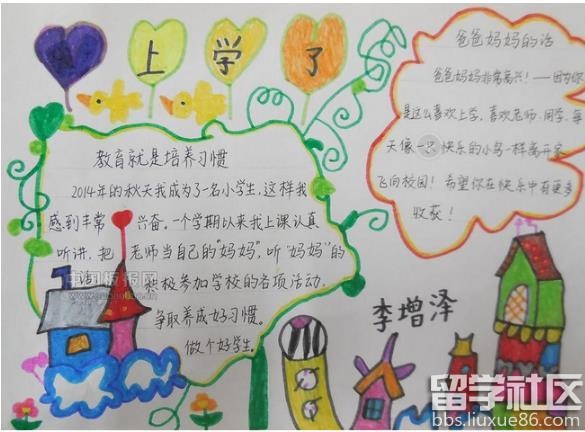 上学了
教育就是培养习惯
2014年的秋天我成为了一名小学生,这样我
感到丰常 兴奋。一个学期以来我上课认真
听讲,把 老师当自己的"妈妈",听"妈妈"的
话,积极参加学校的各项活动,
争取养成好习惯。
做个好学生。
爸爸妈妈的话
爸爸妈妈非常高兴!——因为你
是这么喜欢上学,喜欢老师、同学,每
天像一只快乐的小鸟一样离开家
飞向校园!希望你在快乐中有更多
收获!
李增泽
留学社区
bbs.liuxue86.com